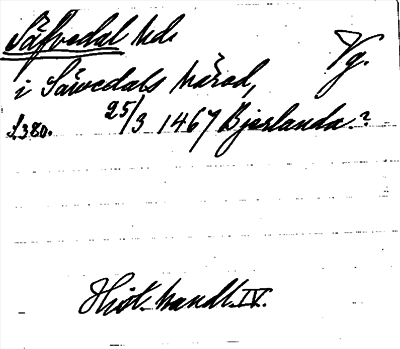 Säfvedal hd.
Vg.
i Säwedals härad,
£380. 25/3 1467 Bjorlanda?
Hist. handl. IV.